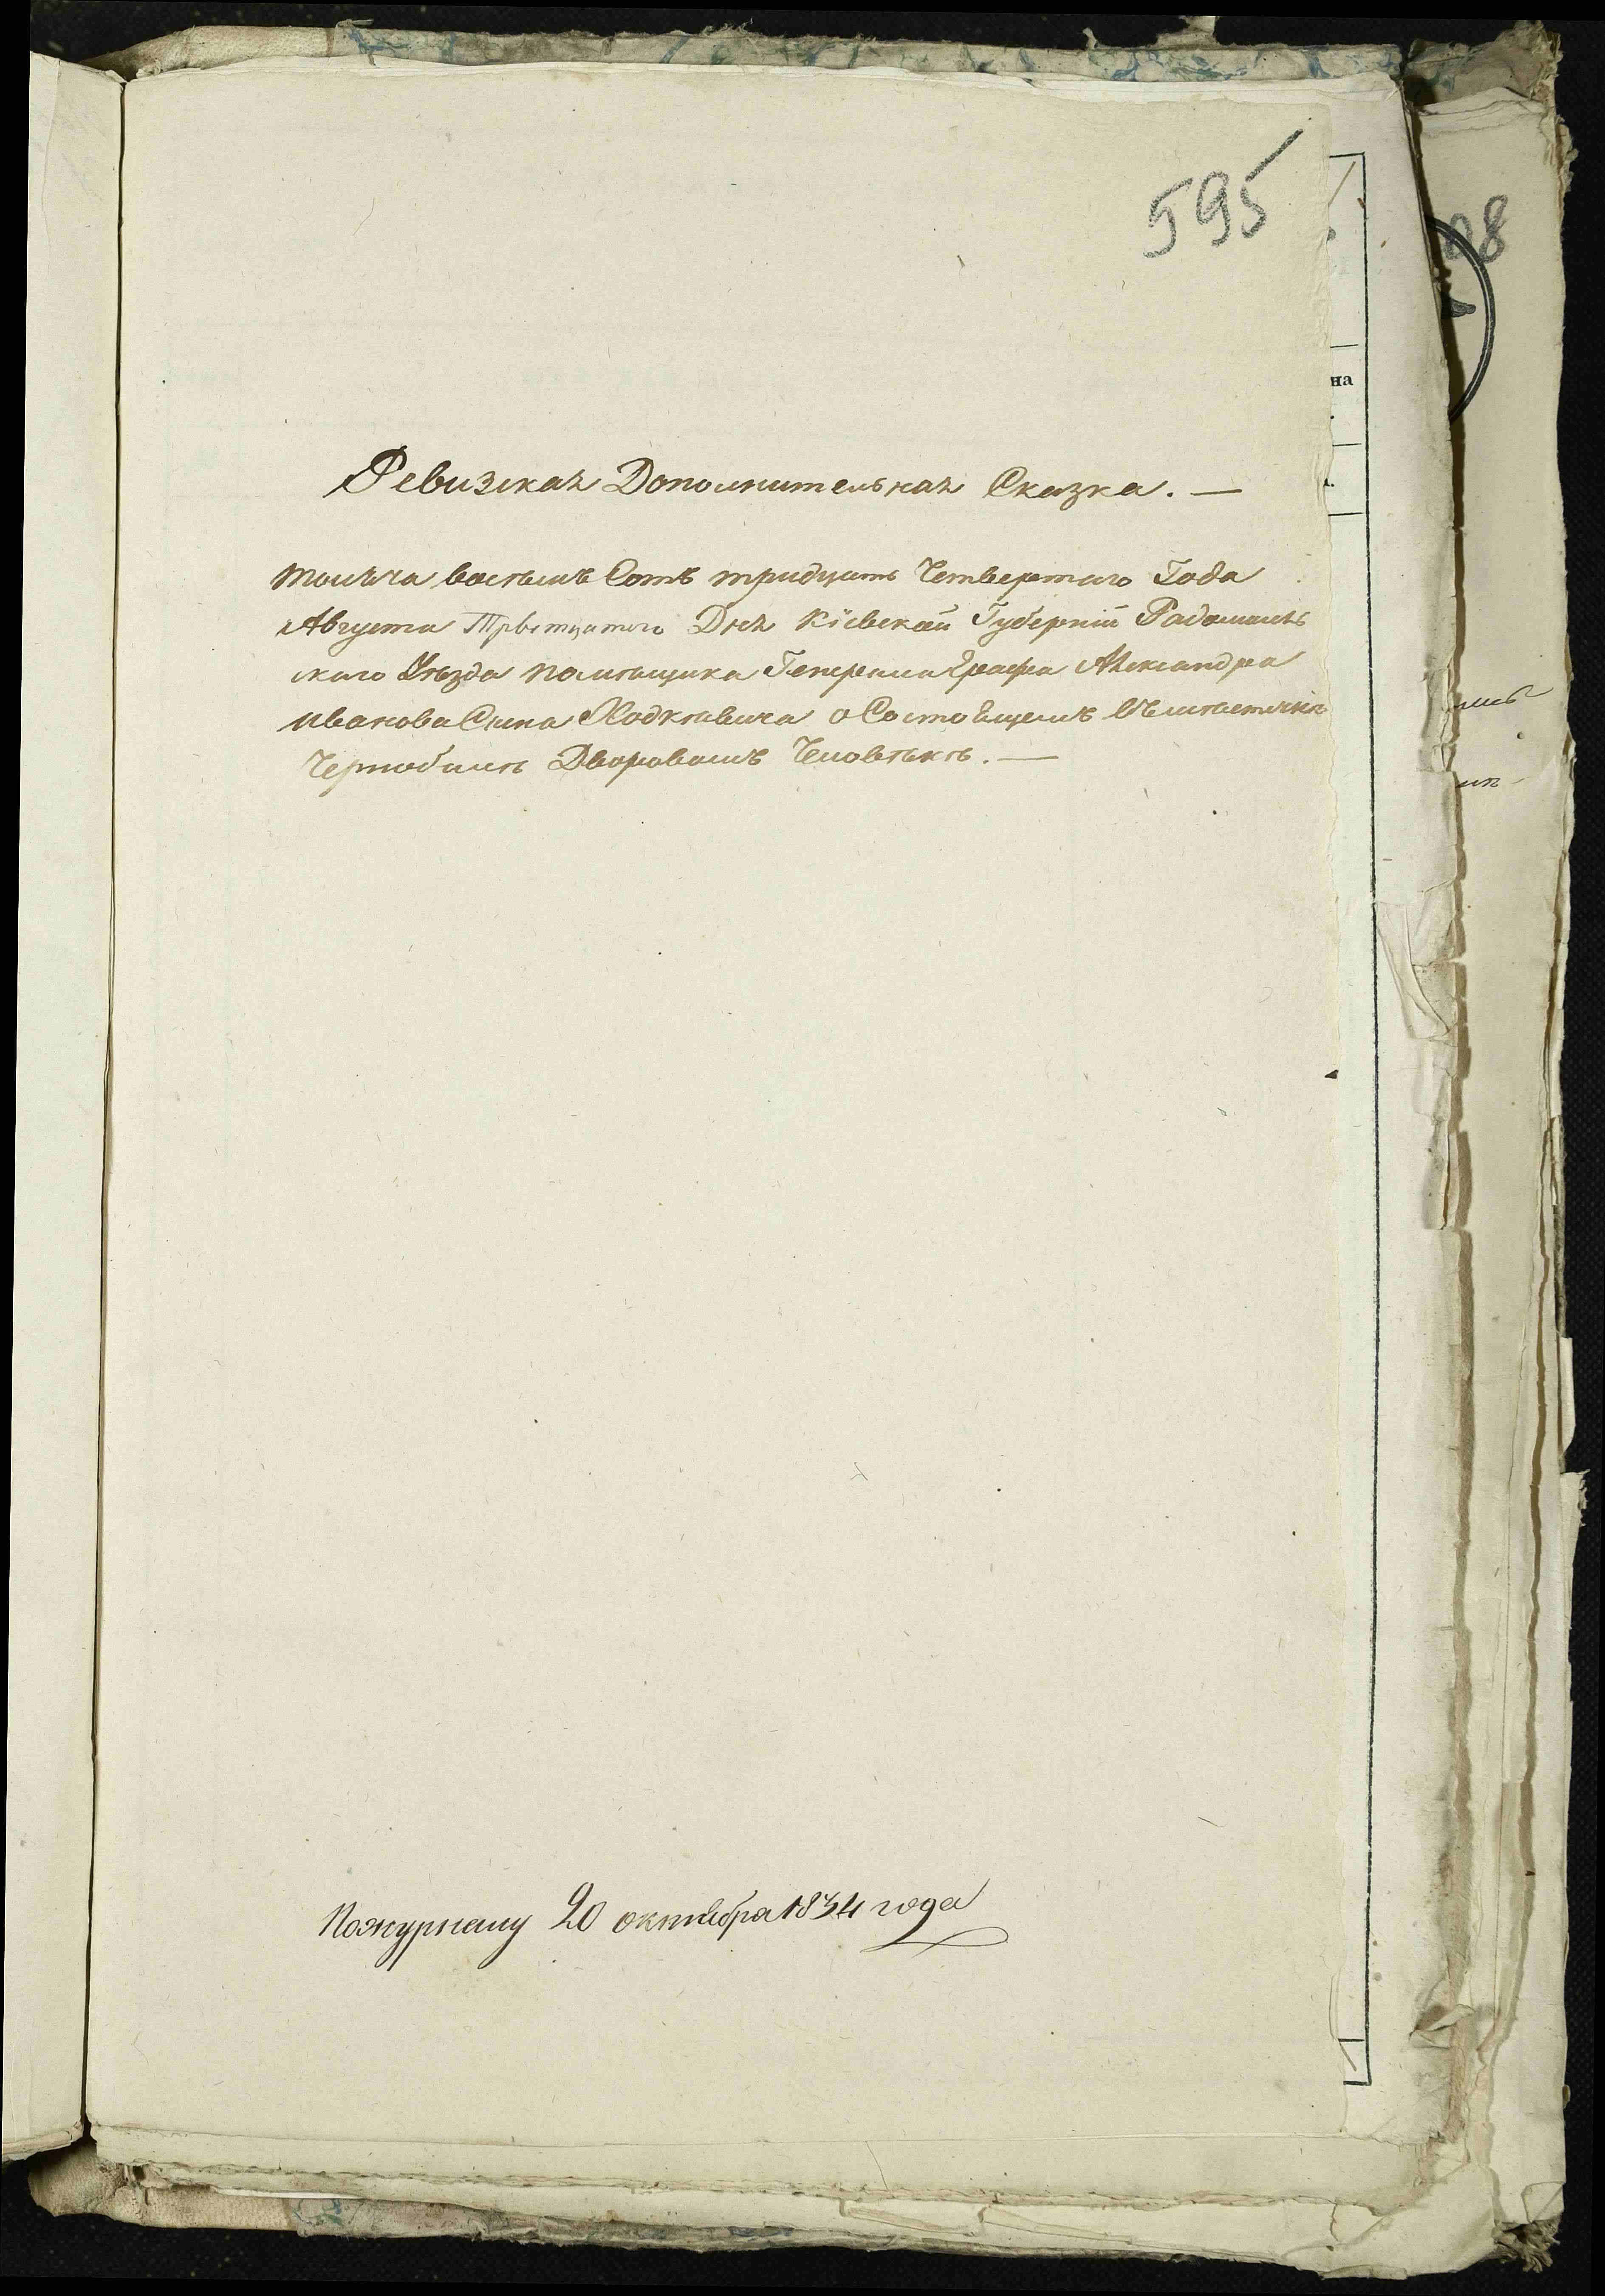 595
Ревизкая Дополнительная Сказка. —
тысеча восемъ Сотъ тридцать Четвертаго Года
Августа Тревтцатого Дня Кіевской Губерніи Радомысль
скаго Уезда помѣщика Генерала Графа Александра
Иванова Сына Ходкѣвича о Состоящемъ въ мѣстечкѣ
Чернобылѣ Дворовомъ Человѣкѣ. —
По журналу 20 октября 1834 года
98
на